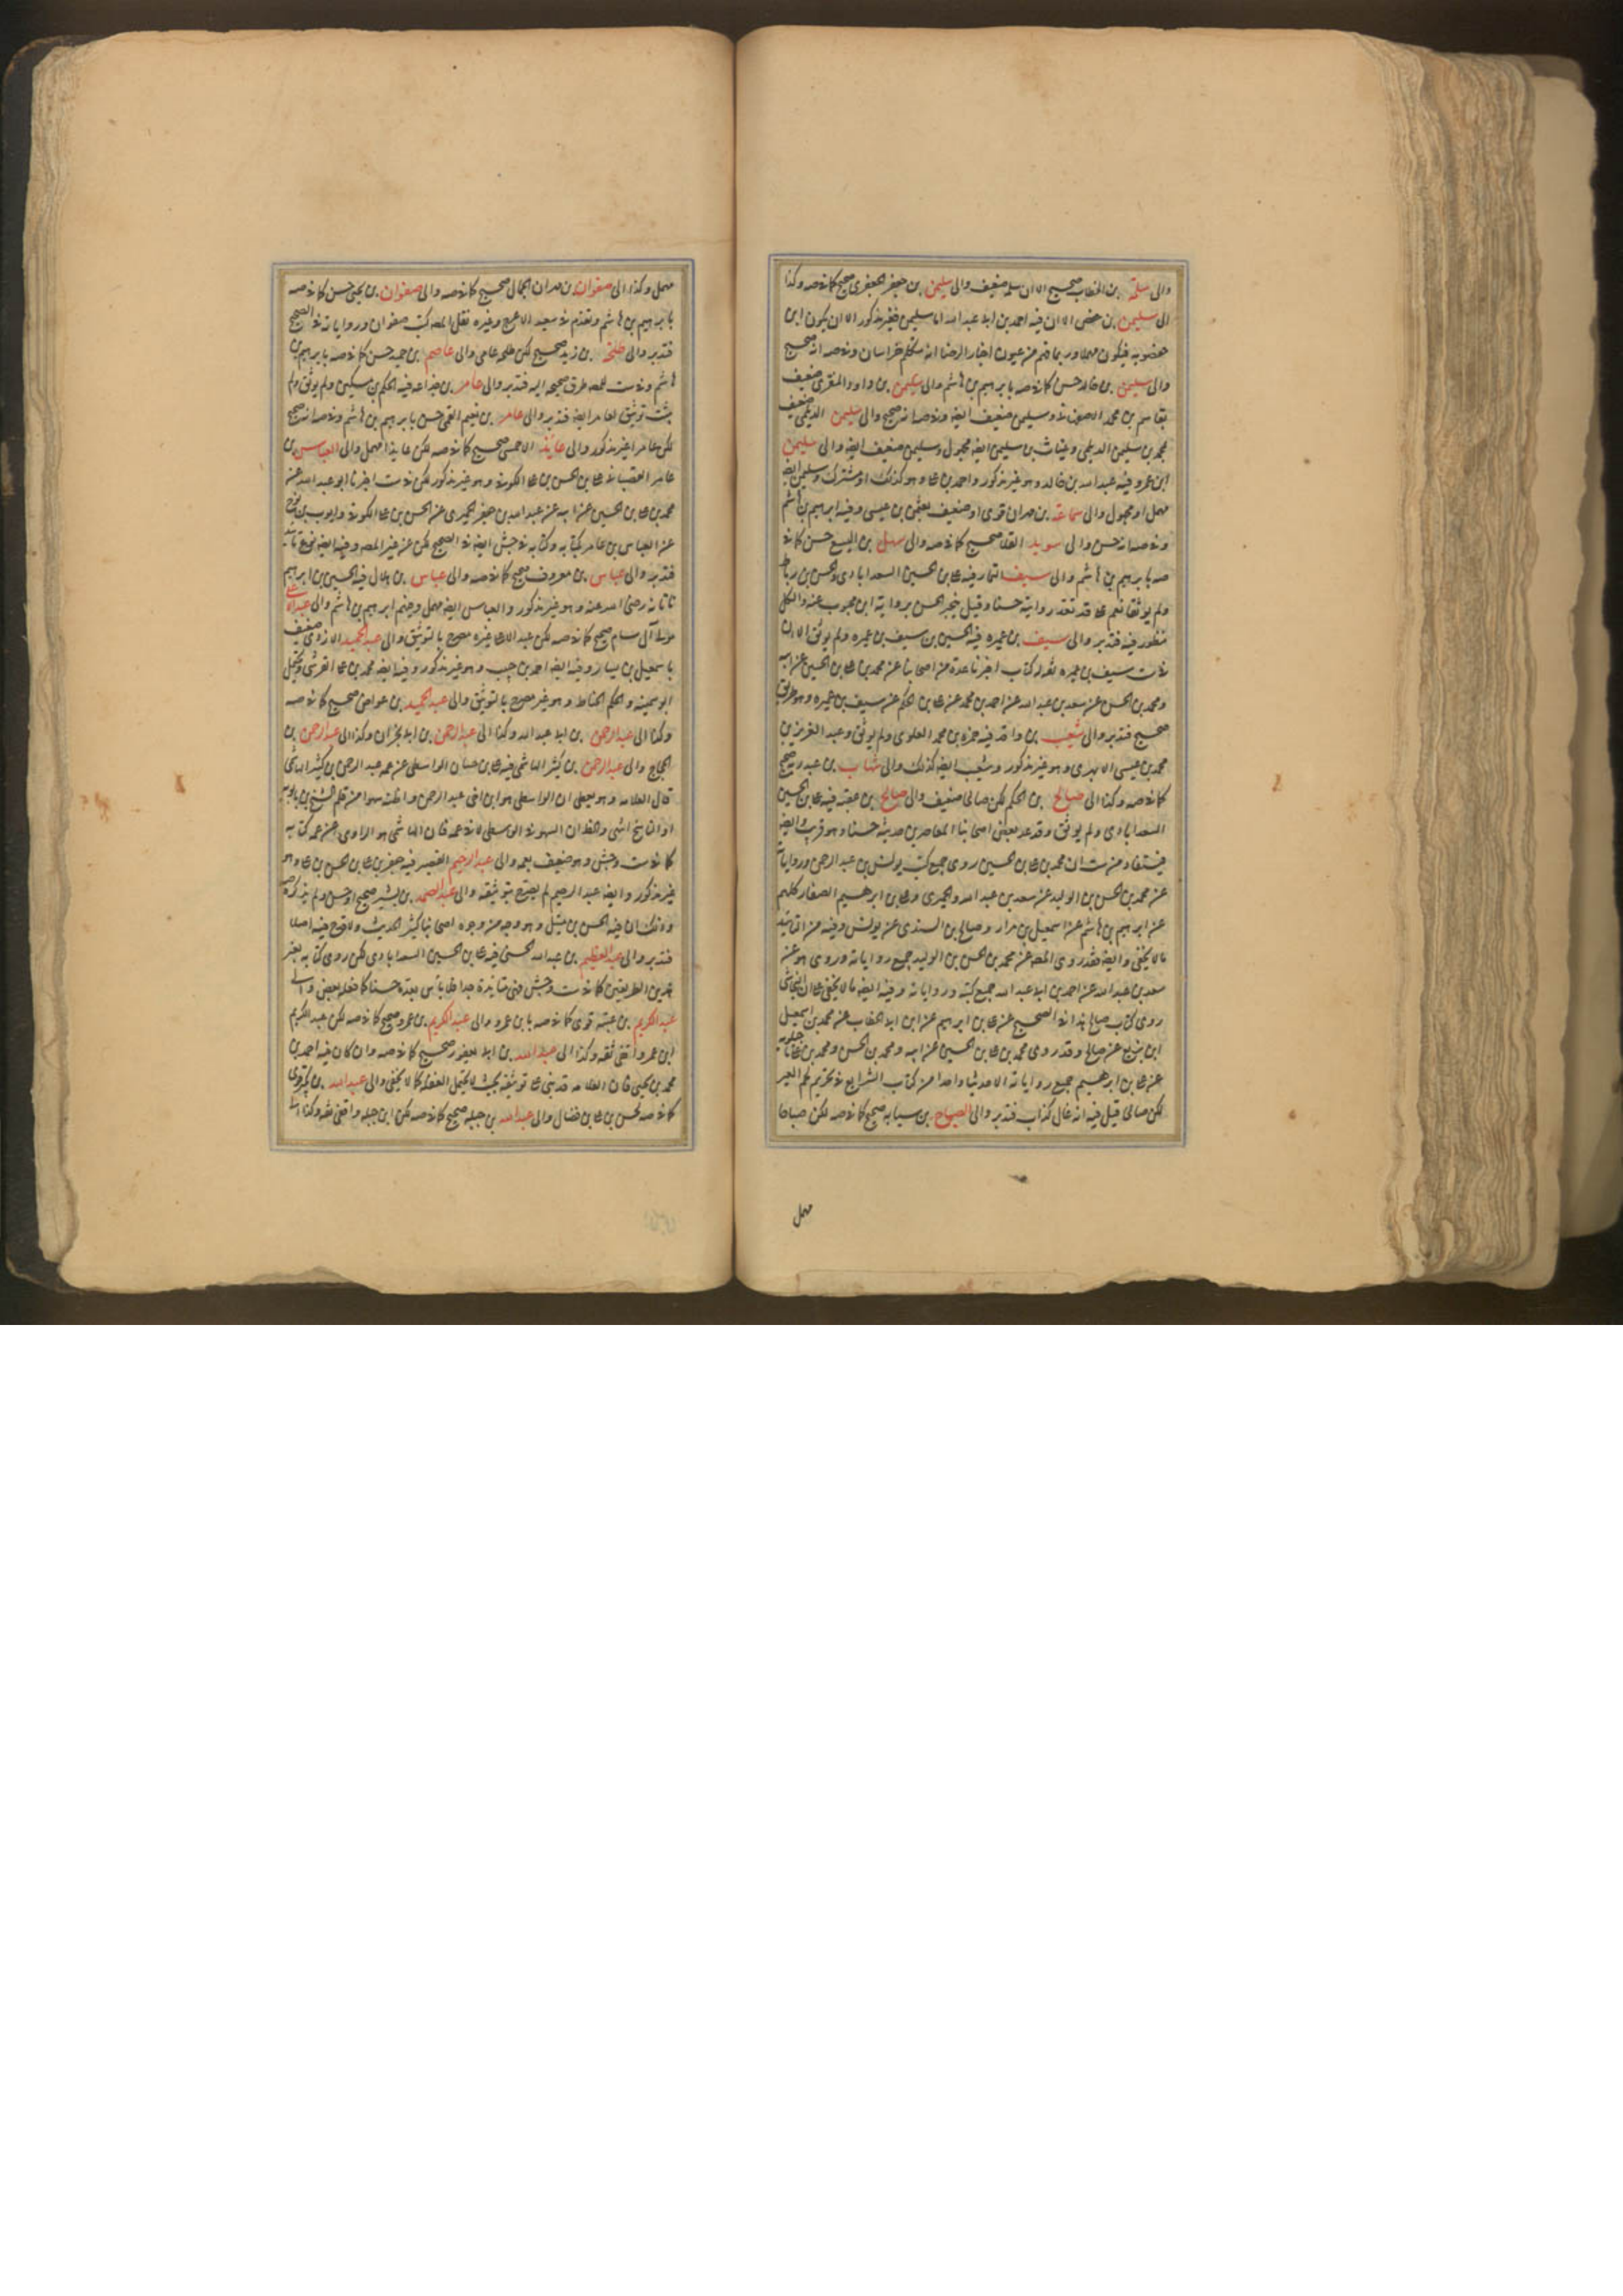 والى سلمة بن الخطاب صحيح الا ان سلمة ضعيف والى سليمن بن جعفر الجعفرى صحيح كما فى صه وكذا
الى سليمن بن حفص الا ان فيه احمد بن ابى عبد الله اما سليمن فغير مذكور الا ان يكون ابن
فيكون مهملا وربما فهم من عيون اخبار الرضا انه متكلم خراسان وفى صه انه صحيح
والى سليمن بن خالد حسن كما فى صه بابرهيم بن هاشم والى سليمن بن داود المنقرى ضعيف
بقاسم بن محمد الاصفهانى وسليمن ضعيف ايضا وفى صه انه صحيح والى سليمن الديلمى ضعيف
بمحمد بن سليمن الديلمى وغياث بن سليمن ايضا مجهول وسليمن ضعيف ايضا والى سليمن
ابن عمرو فيه عبد الله بن خالد وهو غير مذكور واحمد بن على وهو كذلك او مشترك وسليمن ايضا
مهمل او مجهول والى سماعة بن مهران قوى او ضعيف بعثمن بن عيسى وفيه ابرهيم بن هاشم
وفى صه انه حسن والى سويد القلا صحيح كما فى صه والى سهل بن اليسع حسن كما فى
صه بابرهيم بن هاشم والى سيف التمار فيه على بن الحسين السعدابادى والحسن بن رباط
ولم يوثقا نعم قد تعد روايته حسنا وقيل بخبر الحسن برواية ابن محبوب عنه والكل
منظور فيه فتدبر والى سيف بن عميرة فيه الحسين بن سيف بن عميرة ولم يوثق الا ان
فى ست سيف بن عميرة ثقة له كتاب اخبرنا عدة من اصحابنا عن محمد بن على بن الحسين عن ابيه
ومحمد بن الحسن عن سعد بن عبد الله عن احمد بن محمد عن على بن الحكم عن سيف بن عميرة وهو طريق
صحيح فتدبر والى شعيب بن واقد فيه حمزة بن محمد العلوى ولم يوثق وعبد العزيز بن
محمد بن عيسى الابهرى وهو غير مذكور وشعيب ايضا كذلك والى شهاب بن عبد ربه صحيح
كما فى صه وكذا الى صالح بن الحكم لكن صالح ضعيف والى صالح بن عقبة فيه على بن الحسين
السعدابادى ولم يوثق وقد عد بعض اصحابنا المعاصرين حديثه حسنا وهو قريب وايضا
فيستفاد من ست ان محمد بن على بن الحسين روى جميع كتب يونس بن عبد الرحمن ورواياته
عن محمد بن الحسن بن الوليد عن سعد بن عبد الله والحميرى وعلى بن ابرهيم الصفار كلهم
عن ابرهيم بن هاشم عن اسمعيل بن مرار وصالح بن السندى عن يونس وفيه من التأييد
ما لا يخفى وايضا فقد روى المصه عن محمد بن الحسن بن الوليد جميع رواياته وروى هو عن
سعد بن عبد الله عن احمد بن ابى عبد الله جميع كتبه ورواياته وفيه ايضا ما لا يخفى على ان النجاشى
روى كتاب صالح هذا فى الصحيح عن على بن ابرهيم عن ابن ابى الخطاب عن محمد بن اسمعيل
ابن بزيع عن صالح وقد روى محمد بن على بن الحسين عن ابيه ومحمد بن الحسن ومحمد بن على ماجيلويه
عن على بن ابرهيم جميع رواياته الا حديثا واحدا من كتاب الشرايع فى تحريم لحم البعير
لكن صالح قيل فيه انه غال كذاب فتدبر والى الصباح بن سيابة صحيح كما فى صه لكن صباحا
مهمل
مهمل وكذا الى صفوان بن مهران الجمال صحيح كما فى صه والى صفوان بن يحيى حسن كما فى صه
بابرهيم بن هاشم وتقدم فى سعيد الاعرج وغيره نقل المصه كتب صفوان ورواياته فى الصحيح
فتدبر والى طلحة بن زيد صحيح لكن طلحة عامى والى عاصم بن حميد حسن كما فى صه بابرهيم بن
هاشم وفى ست للمصه طرق صحيحة اليه فتدبر والى عامر بن جذاعة فيه الحكم بن مسكين ولم يوثق ولم
يثبت توثيق لعامر ايضا فتدبر والى عامر بن نعيم القمى حسن بابرهيم بن هاشم وفى صه انه صحيح
لكن عامرا غير مذكور والى عايذ الاحمسى صحيح كما فى صه لكن عايذا مهمل والى العباس بن
عامر القصبانى على بن الحسن بن على الكوفى وهو غير مذكور لكن فى ست اخبرنا ابو عبد الله عن
محمد بن على بن الحسين عن ابيه عن عبد الله بن جعفر الحميرى عن الحسن بن على الكوفى وايوب بن نوح
عن العباس بن عامر بكتابه وكتابه فى جش ايضا فى الصحيح لكن عن غير المصه وفيه ايضا نوع تأييد
فتدبر والى عباس بن معروف صحيح كما فى صه والى عباس بن هلال فيه الحسين بن ابرهيم
تاتانه رضى الله عنه وهو غير مذكور والعباس ايضا مهمل وفيهم ابرهيم بن هاشم والى عبد الاعلى
مولى آل سام صحيح كما فى صه لكن عبد الاعلى غير مصرح بالتوثيق والى عبد الحميد الازدى ضعيف
باسمعيل بن يسار وفيه ايضا احمد بن حبيب وهو غير مذكور وفيه ايضا محمد بن على القرشى ويحتمل
ابو سمينة والحكم الحناط وهو غير مصرح بالتوثيق والى عبد الحميد بن عواض صحيح كما فى صه
وكذا الى عبد الرحمن بن ابى عبد الله وكذا الى عبد الرحمن بن ابى نجران وكذا الى عبد الرحمن بن
الحجاج والى عبد الرحمن بن كثير الهاشمى فيه على بن حسان الواسطى عن عمه عبد الرحمن بن كثير الهاشمى
قال العلامه وهو يعطى ان الواسطى هو ابن اخى عبد الرحمن واظنه سهوا من قلم الشيخ بن بابويه
او الناسخ انتهى والظ ان السهو فى الواسطى لا فى عمه فان الهاشمى هو الراوى عن عمه كتابه
كما فى ست وجش وهو ضعيف بعمه والى عبد الرحيم القصير فيه جعفر بن على بن الحسن بن على وهو
غير مذكور وايضا عبد الرحيم لم يصرح بتوثيقه والى عبد الصمد بن بشير صحيح او حسن ولم يذكره صه
وذلك ان فيه الحسن بن متيل وهو وجه من وجوه اصحابنا كثير الحديث ولا قدح فيه اصلا
فتدبر والى عبد العظيم بن عبد الله الحسنى فيه على بن الحسين السعدابادى لكن روى كتابه بغير
هذين الطريقين كما فى ست وجش ففى متايدة جدا فلا بأس بعده حسنا كما فعله بعض والى
عبد الكريم بن عتبة قوى كما فى صه بابن عمرو والى عبد الكريم بن عمرو صحيح كما فى صه لكن عبد الكريم
ابن عمرو واقفى ثقة وكذا الى عبد الله بن ابى يعفور صحيح كما فى صه وان كان فيه احمد بن
محمد بن يحيى فان العلامه قد بنى على توثيقه بحيث لا يحتمل الغفلة كما لا يخفى والى عبد الله بن بكير قوى
كما فى صه لحسن بن على بن فضال والى عبد الله بن جبلة صحيح كما فى صه لكن ابن جبلة واقفى ثقة وكذا الى